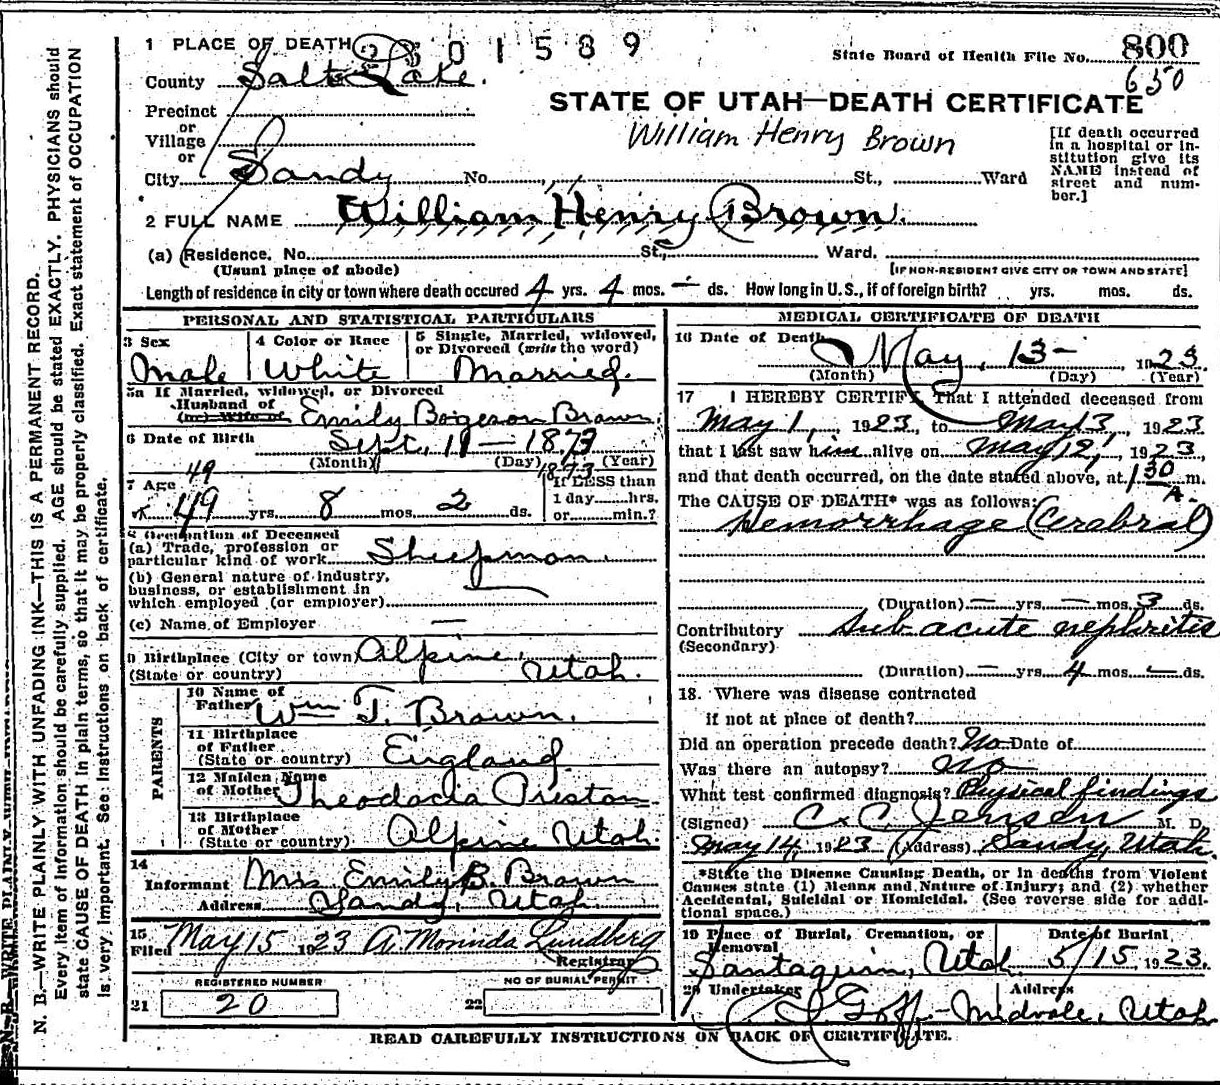 1 PLACE OF DEATH
2301589
State Board of Health File No. 800
650
County Salt Lake.
STATE OF UTAH—DEATH CERTIFICATE
Precinct
or
Village
or
William Henry Brown
[If death occurred in a hospital or institution give its NAME instead of street and number.]
City Sandy No. St., Ward
2 FULL NAME William Henry Brown.
(a) Residence. No. St., Ward.
(Usual place of abode) [IF NON-RESIDENT GIVE CITY OR TOWN AND STATE]
Length of residence in city or town where death occured 4 yrs. 4 mos. — ds. How long in U. S., if of foreign birth? yrs. mos. ds.
PERSONAL AND STATISTICAL PARTICULARS
3 Sex
Male
4 Color or Race
White
5 Single, Married, widowed, or Divorced (write the word)
Married.
5a If Married, widowed, or Divorced
Husband of
(or) Wife of Emily Bogeson Brown
6 Date of Birth Sept, 11 — 1873
(Month) (Day) 1873 (Year)
49
7 Age
49 yrs. 8 mos. 2 ds.
If LESS than
1 day hrs.
or min.?
8 Occupation of Deceased
(a) Trade, profession or
particular kind of work Sheepman.
(b) General nature of industry,
business, or establishment in
which employed (or employer)
(c) Name of Employer —
9 Birthplace (City or town) Alpine,
(State or country) Utah.
PARENTS
10 Name of
Father Wm T. Brown.
11 Birthplace
of Father
(State or country) England
12 Maiden Name
of Mother Theodacia Preston
13 Birthplace
of Mother
(State or country) Alpine Utah.
14
Informant Mrs Emily B. Brown
Address Sandy, Utah
15
Filed May 15 1923 A. Morinda Lundberg
Registrar
REGISTERED NUMBER
21 20
NO OF BURIAL PERMIT
22
MEDICAL CERTIFICATE OF DEATH
16 Date of Death May, 13 — , 1923
(Month) (Day) (Year)
17 I HEREBY CERTIFY, That I attended deceased from
May 1, , 1923, to May 13 , 1923
that I last saw him alive on May 12, , 1923,
and that death occurred, on the date stated above, at 1 30 A. m.
The CAUSE OF DEATH* was as follows:
Hemorrhage (Cerebral)
(Duration) — yrs. — mos. 3 ds.
Contributory Sub acute nephritis
(Secondary)
(Duration) — yrs. 4 mos. — ds.
18. Where was disease contracted
if not at place of death?
Did an operation precede death? No Date of
Was there an autopsy? No
What test confirmed diagnosis? Physical findings
(Signed) C. C. Jensen M. D.
May 14, 1923 (Address) Sandy, Utah.
*State the Disease Causing Death, or in deaths from Violent
Causes state (1) Means and Nature of Injury; and (2) whether
Accidental, Suicidal or Homicidal. (See reverse side for additional space.)
19 Place of Burial, Cremation, or Removal Date of Burial
Santaquin, Utah. 5/15, 1923.
20 Undertaker Address
Goff - Midvale, Utah
READ CAREFULLY INSTRUCTIONS ON BACK OF CERTIFICATE.
N. B.—WRITE PLAINLY WITH UNFADING INK—THIS IS A PERMANENT RECORD.
Every item of information should be carefully supplied. AGE should be stated EXACTLY. PHYSICIANS should
state CAUSE OF DEATH in plain terms, so that it may be properly classified. Exact statement of OCCUPATION
is very important. See instructions on back of certificate.